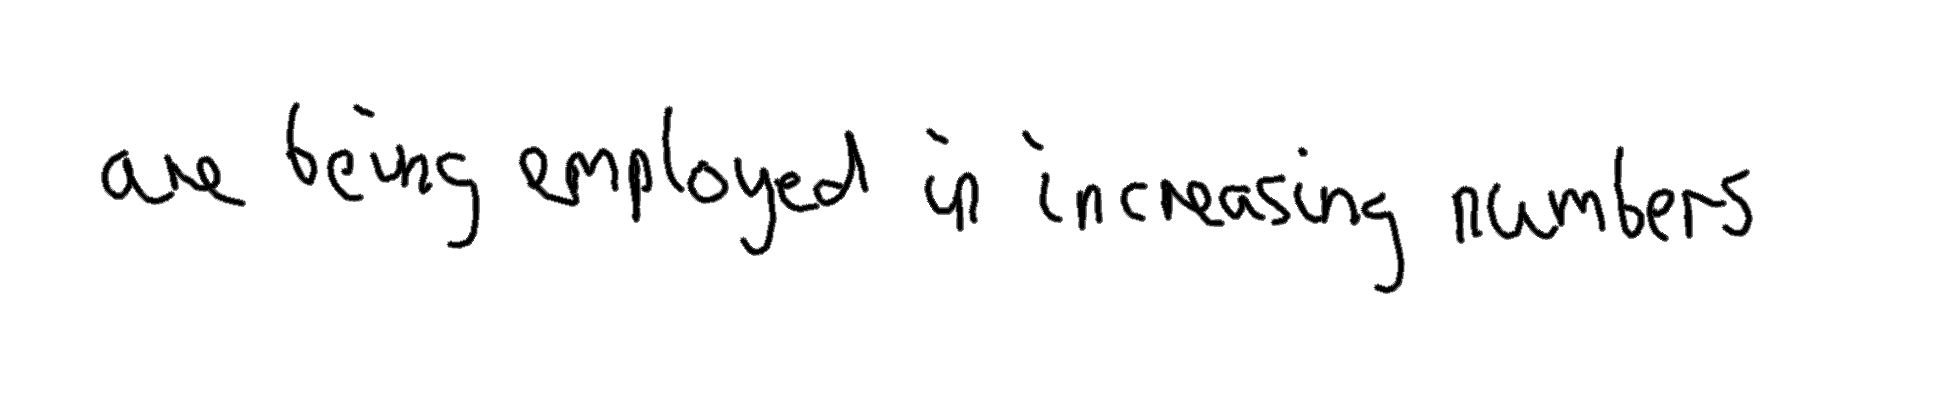 are being employed in increasing numbers